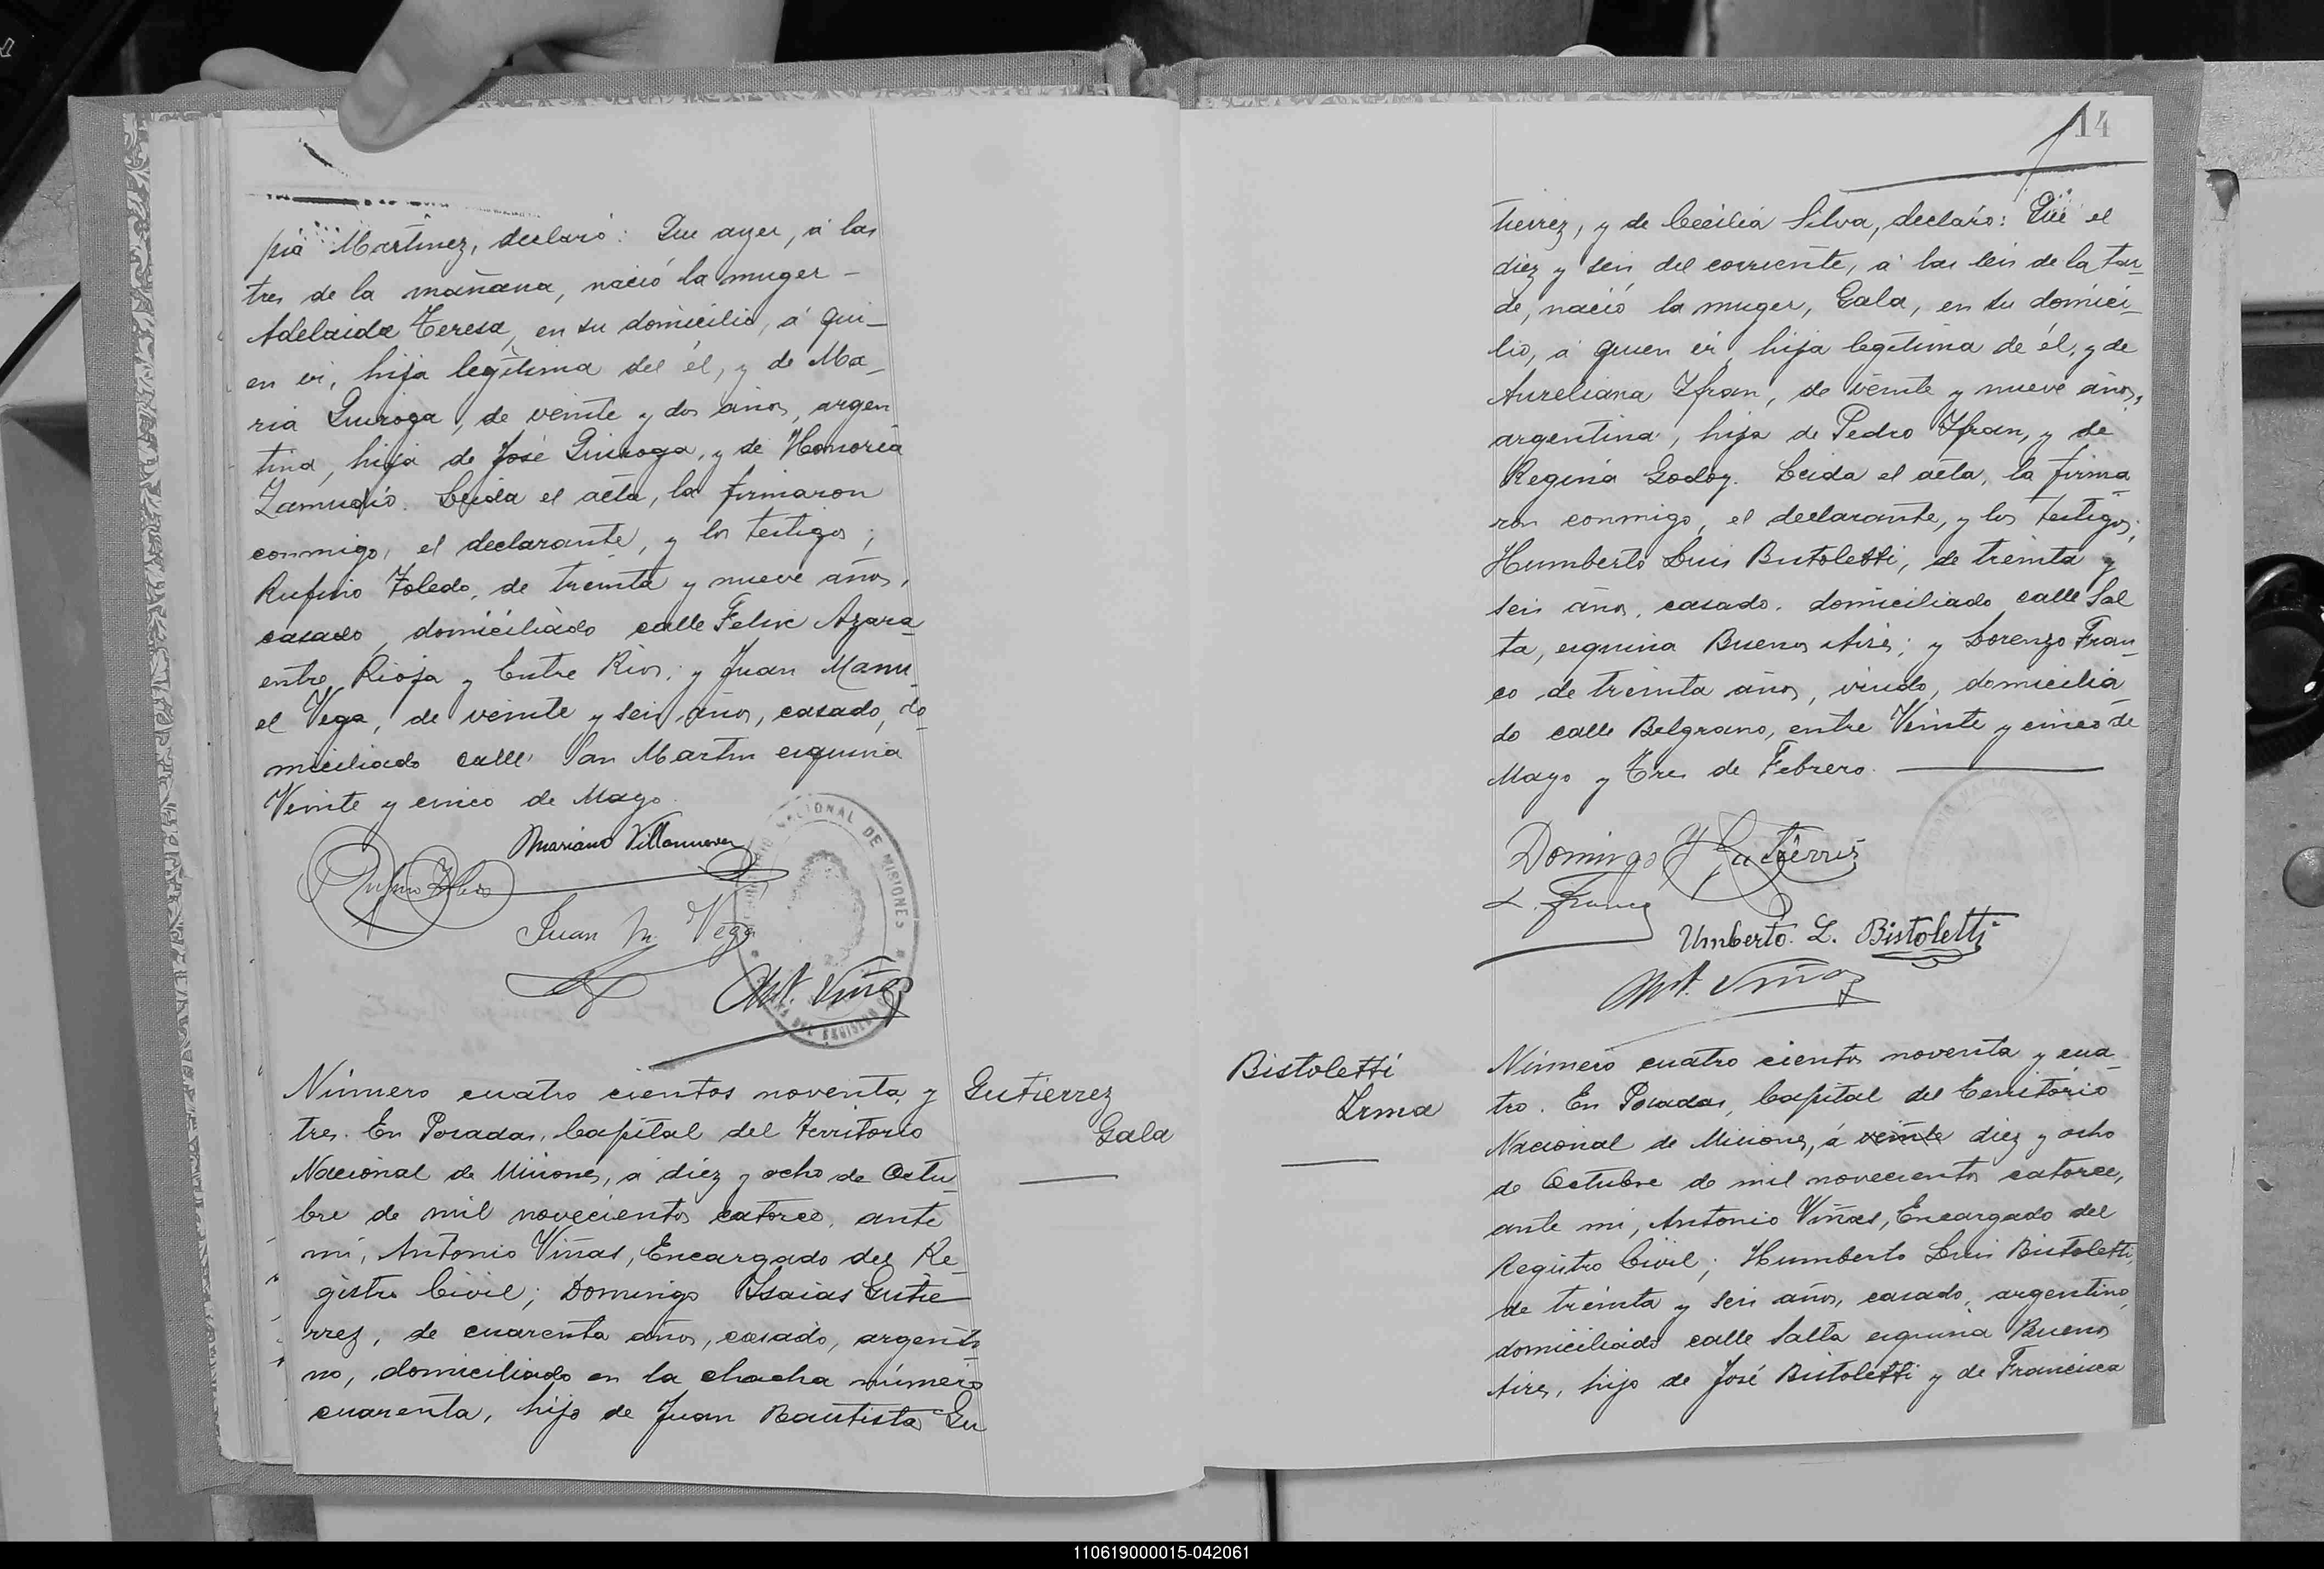 pia Martinez, declaró: Que ayer, á las
tres de la mañana, nació la muger –
Adelaida Teresa, en su domicilio, á qui–
en vi, hija legítima del él, y de Ma–
ria Quiroga, de veinte y dos años, argen
tina, hija de José Quiroga, y de Honoria
Zamudio. Leida el acta, la firmaron
conmigo, el declarante, y los testigos;
Rufino Toledo, de treinta y nueve años,
casado, domiciliado calle Felix Azara
entre Rioja y Entre Rios; y Juan Manu–
el Vega, de veinte y seis años, casado, do
miciliado calle San Martin esquina
Veinte y cinco de Mayo.
Mariano Villanueva
Rufino Toledo
Juan M. Vega
Ant. Viñas
NACIONAL DE MISIONES
Número cuatro cientos noventa y
tres. En Posadas, Capital del Territorio
Nacional de Misiones, á diez y ocho de Octu–
bre de mil novecientos catorce, ante
mi, Antonio Viñas, Encargado del Re–
gistro Civil; Domingo Isaias Gutie
rrez, de cuarenta años, casado, argenti–
no, domiciliado en la chacha número
cuarenta, hijo de Juan Bautista Gu
Gutierrez
Gala
14
tierrez, y de Cecilia Silva, declaró: Que el
diez y seis del corriente, á las seis de la tar–
de, nació la muger, Gala, en su domici–
lio, á quien vi, hija legítima de él, y de
Aureliana Ifran, de veinte y nueve años,
argentina, hija de Pedro Ifran, y de
Regina Godoy. Leida el acta, la firma
ron conmigo, el declarante, y los testigos;
Humberto Luis Bistoletti, de treinta y
seis años, casado, domiciliado calle Sal
ta, esquina Buenos Aires; y Lorenzo Fran–
co de treinta años, viudo, domicilia
do calle Belgrano, entre Veinte y cinco de
Mayo y Tres de Febrero.
Domingo Y Gutierres
L. Franco
Umberto. L. Bistoletti
Ant. Viñas
Bistoletti
Irma
Número cuatro cientos noventa y cua–
tro. En Posadas, Capital del Territorio
Nacional de Misiones, á veinte diez y ocho
de Octubre de mil novecientos catorce,
ante mi, Antonio Viñas, Encargado del
Registro Civil; Humberto Luis Bistoletti,
de treinta y seis años, casado, argentino,
domiciliado calle Salta esquina Buenos
Aires, hijo de José Bistoletti y de Francisca
110619000015-042061